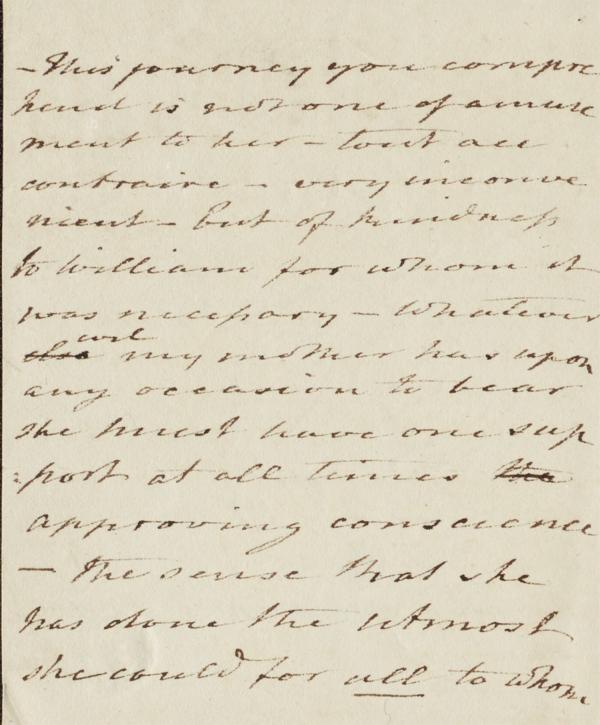 - This journey you compre
hend is not one of amuse
ment to her - tout au
contraire - very inconve
nient - but of kindness
to William for whom it
was necessary - Whatever
evil
else my mother has upon
any occasion to bear
she must have one sup
:port at all times the
approving conscience
- the sense that she
has done the utmost
she could for all to whom